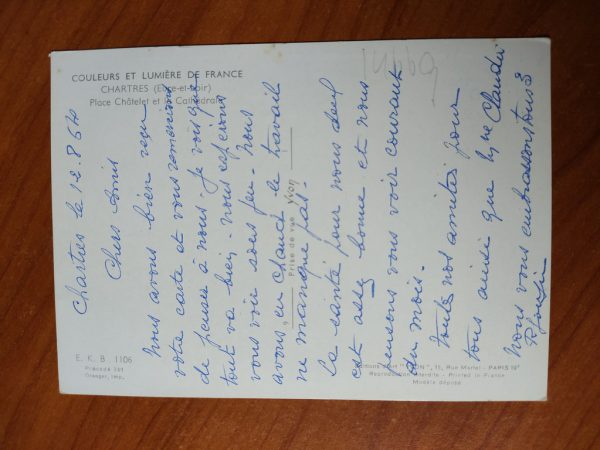 COULEURS ET LUMIÈRE DE FRANCE
CHARTRES (Eure-et-Loir)
Place Châtelet et la Cathédrale
Chartres le 12.8.64
Chers Amis
Nous avons bien reçu
votre carte et vous remercions
de penser à nous. Je vois que
tout va bien. nous espérions
vous voir sous peu. nous
avons eu chance le travail
ne manque pas.
La santé pour nous deux
est assez bonne et nous
pensons vous voir courant
du mois.
toutes nos amitiés pour
tous ainsi que Claudie
Nous vous embrassons tous 3
Prise de vue Yvon
E. K. B. 1106
Précédé 301
Granger, Imp.
15, Rue Martel - PARIS Xe
Reproduction interdite - Printed in France
Modèle déposé